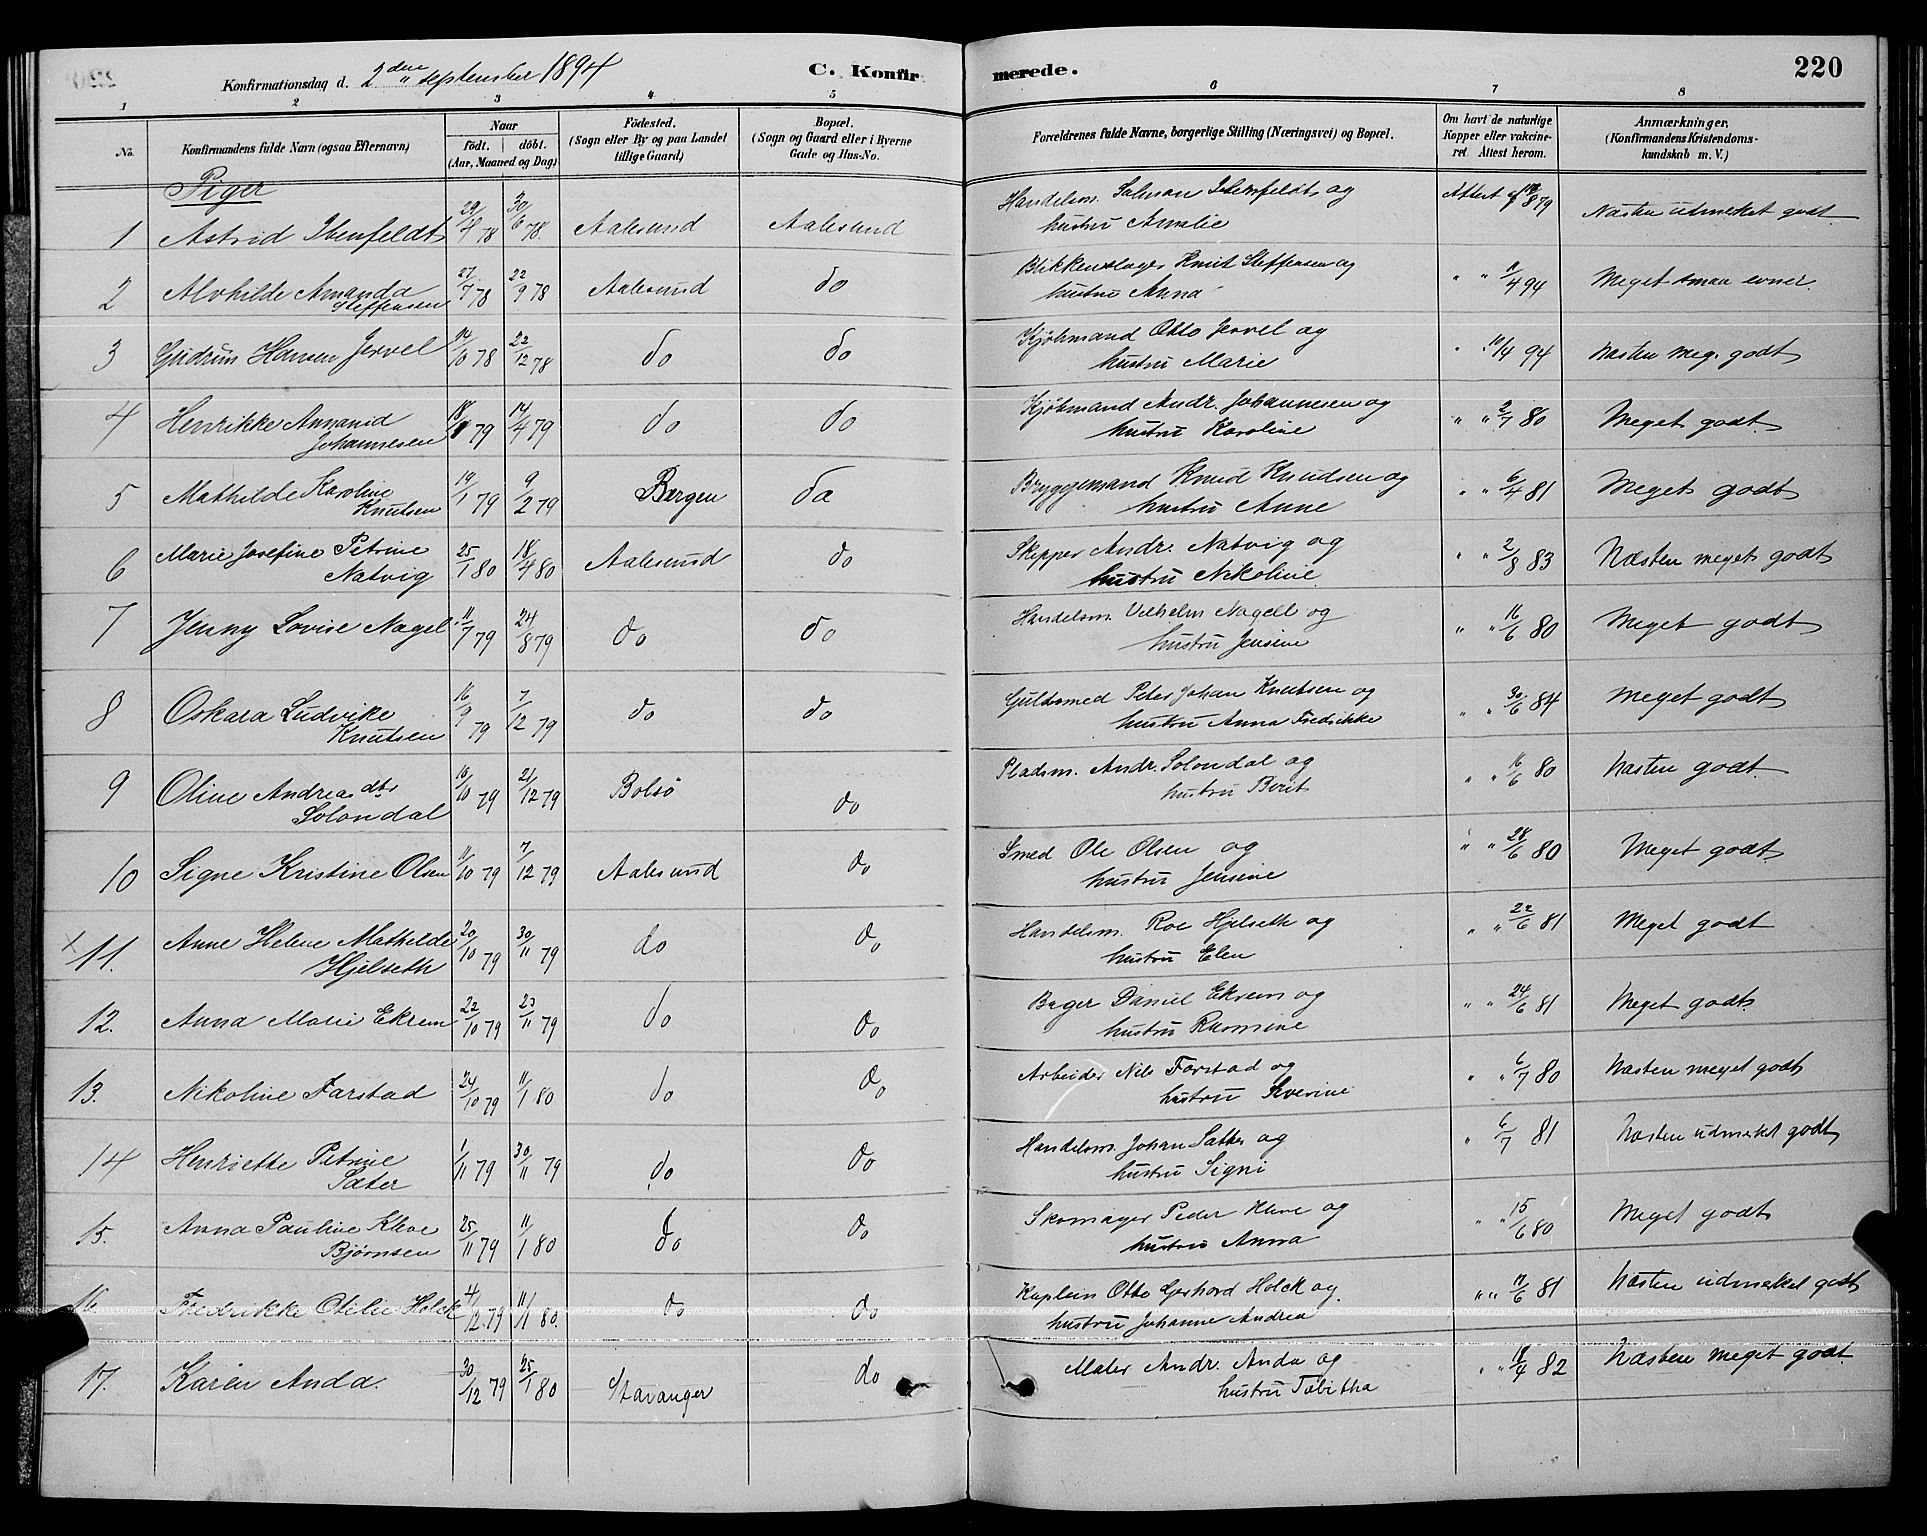 220
Konfirmationsdag d. 2den september 1894 C. Konfirmerede.
1 2 3 4 5 6 7 8
No. Konfirmandens fulde Navn (ogsaa Efternavn) Naar født. døbt. (Aar, Maaned og Dag) Fødested. (Sogn eller By og paa Landet tillige Gaard) Bopæl. (Sogn og Gaard eller i Byerne Gade og Hus-No. Forældrenes fulde Navne, borgerlige Stilling (Næringsvei) og Bopæl. Om havt de naturlige Kopper eller vakcineret. Attest herom. Anmærkninger, (Konfirmandens Kristendomskundskab m. V.)
Piger
1 Astrid Ibenfeldt 29/4 78 30/6 78. Aalesund Aalesund Handelsm. Salmon Ibenfeldt og Attest af 8 79 Næsten udmerket godt
hustru Amalie
2 Alvhilde Amanda 27/7 78 22/9 78 Aalesund do Blikkenslager Knut Steffensen og " " 11/4 94 Meget smaa evner.
Steffensen hustru Anna
3 Gudrun Hansen Jervel 14/10 78 22/12 78 do do Kjøbmand Otto Jervel og " " 10/4 94 Næsten meg. godt
hustru Marie
4 Henrikke Annanid 18/1 79 14/4 79 do do Kjøbmand Andr. Johannesen og " " 2/7 80 Meget godt
Johannesen hustru Karoline
5 Mathilde Karoline 19/1 79 9/2 79 Bergen do Bryggemand Knud Knudsen og " " 6/4 81 Meget godt
Knutsen hustru Anne
6 Marie Josefine Petrine 25/1 80 18/4 80 Aalesund do Skipper Andr. Natvig og " " 2/8 83 Næsten meget godt
Natvig hustru Nikoline
7 Jenny Lovise Nagel 11/7 79 24/8 79 do do Handelsm. Vilhelm Nagell og " " 16/6 80 Meget godt
hustru Jensine
8 Oskara Ludvike 16/9 79 7/12 79 do do Guldsmed Peter Johan Knutsen og " " 30/6 84 Meget godt
Knutsen hustru Anna Fredrikke
9 Oline Andreasdtr 16/10 79 21/12 79 Bolsø do Pladsm. Andr. Solondal og " " 16/6 80 Næsten godt.
Solondal hustru Berit
10 Signe Kristine Olsen 11/10 79 7/12 79 Aalesund do Smed Ole Olsen og " " 28/6 80 Meget godt
hustru Jensine
11. Anne Helene Mathilde 20/10 79 30/11 79 do do Handelsm. Roe Hjelseth og " " 22/6 81 Meget godt
Hjelseth hustru Elen
12. Anna Marie Ekrem 22/10 79 23/11 79 do do Bager Daniel Ekrem og " " 24/6 81 Meget godt.
hustru Rasmine
13. Nikoline Farstad 24/10 79 11/1 80 do do Arbeider Nils Farstad og " " 6/7 80 Næsten meget godt
hustru Severine
14 Henriette Petrine 1/11 79 30/11 79 do do Handelsm. Johan Sæther og " 6/7 81 Næsten udmerket godt
Sæter hustru Signi
15. Anna Pauline Kleve 25/11 79 11/1 80 do do Skomager Peder Kleve og " " 15/6 80 Meget godt
Bjørnsen hustru Anna
16. Fredrikke Otilie Holck 4/12 79 11/1 80. do do Kaptein Otto Gerhard Holck og " " 17/6 81 Næsten udmerket godt
hustru Johanne Andrea
17. Karen Anda. 30/12 79 25/1 80 Stavanger do Maler Andr. Anda og " " 18/4 82 Næsten meget godt.
hustru Tabitha